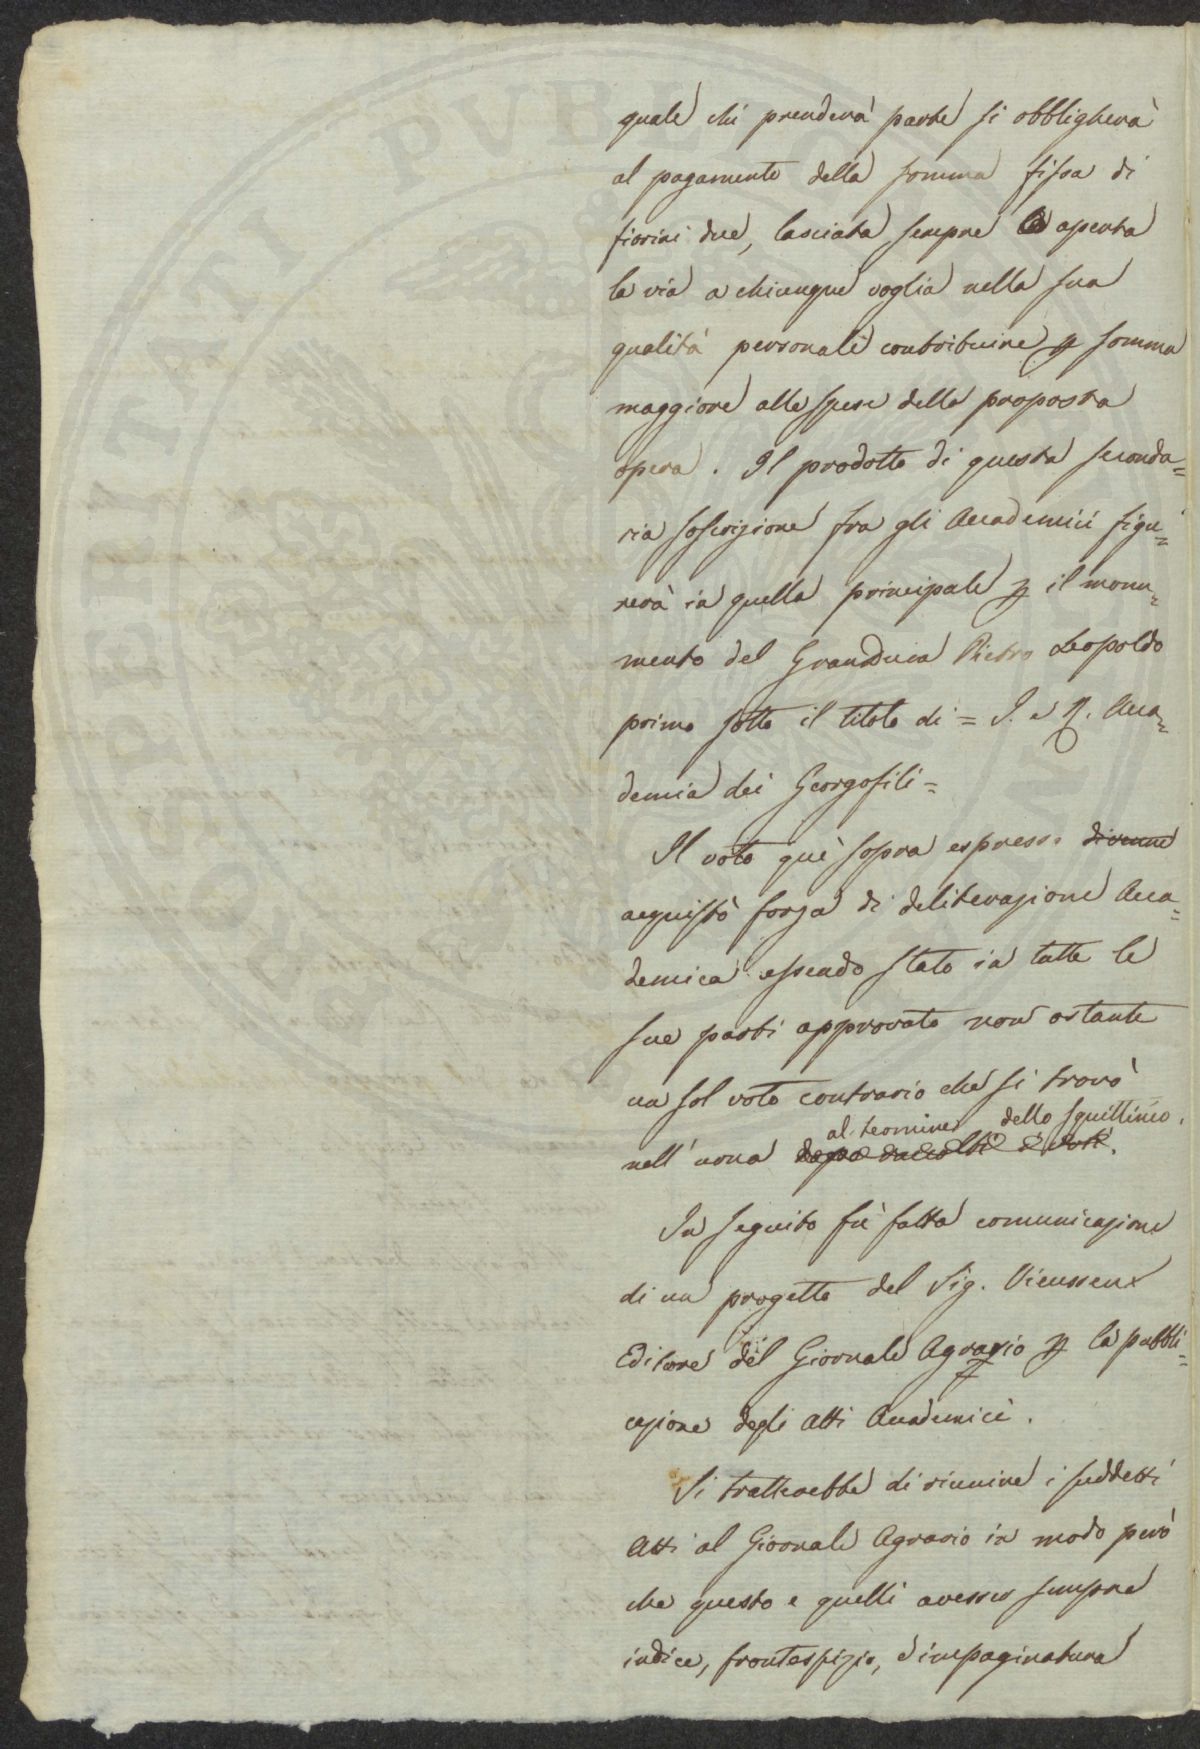 quale chi prenderà parte si obbligherà
al pagamento della somma fissa di
fiorini due, lasciata sempre aperta
la via a chiunque voglia nella sua
qualità personale contribuire p somma
maggiore alle spese della proposta
opera. Il prodotto di questa seconda=
ria soscrizione fra gli Accademici figu=
rerà in quella principale p il monu=
mento del Granduca Pietro Leopoldo
primo sotto il titolo di = I. e R. Acca=
demia dei Georgofili =
Il voto quì sopra espresso divenne
acquistò forza di deliberazione Acca=
demica essendo stato in tutte le
sue parti approvato non ostante
un sol voto contrario che si trovò
al termine dello squittinio.
nell'urna dopo raccolti i voti.
In seguito fù fatta comunicazione
di un progetto del Sig. Vieusseux
Editore del Giornale Agrario p la pubbli=
cazione degli Atti Accademici.
Si tratterebbe di riunire i suddetti
Atti al Giornale Agrario in modo però
che questo e quelli avesser sempre
indice, frontespizio, e impaginatura